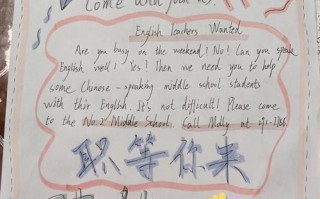 Come and join us!
English Teachers Wanted
Are you busy on the weekend? No! Can you speak
English well? Yes! Then we need you to help
some Chinese-speaking middle school students
with thir English. It's not difficult! Please come
to the No.2 Middle School. Call Molly at 291-1786.
职等你来